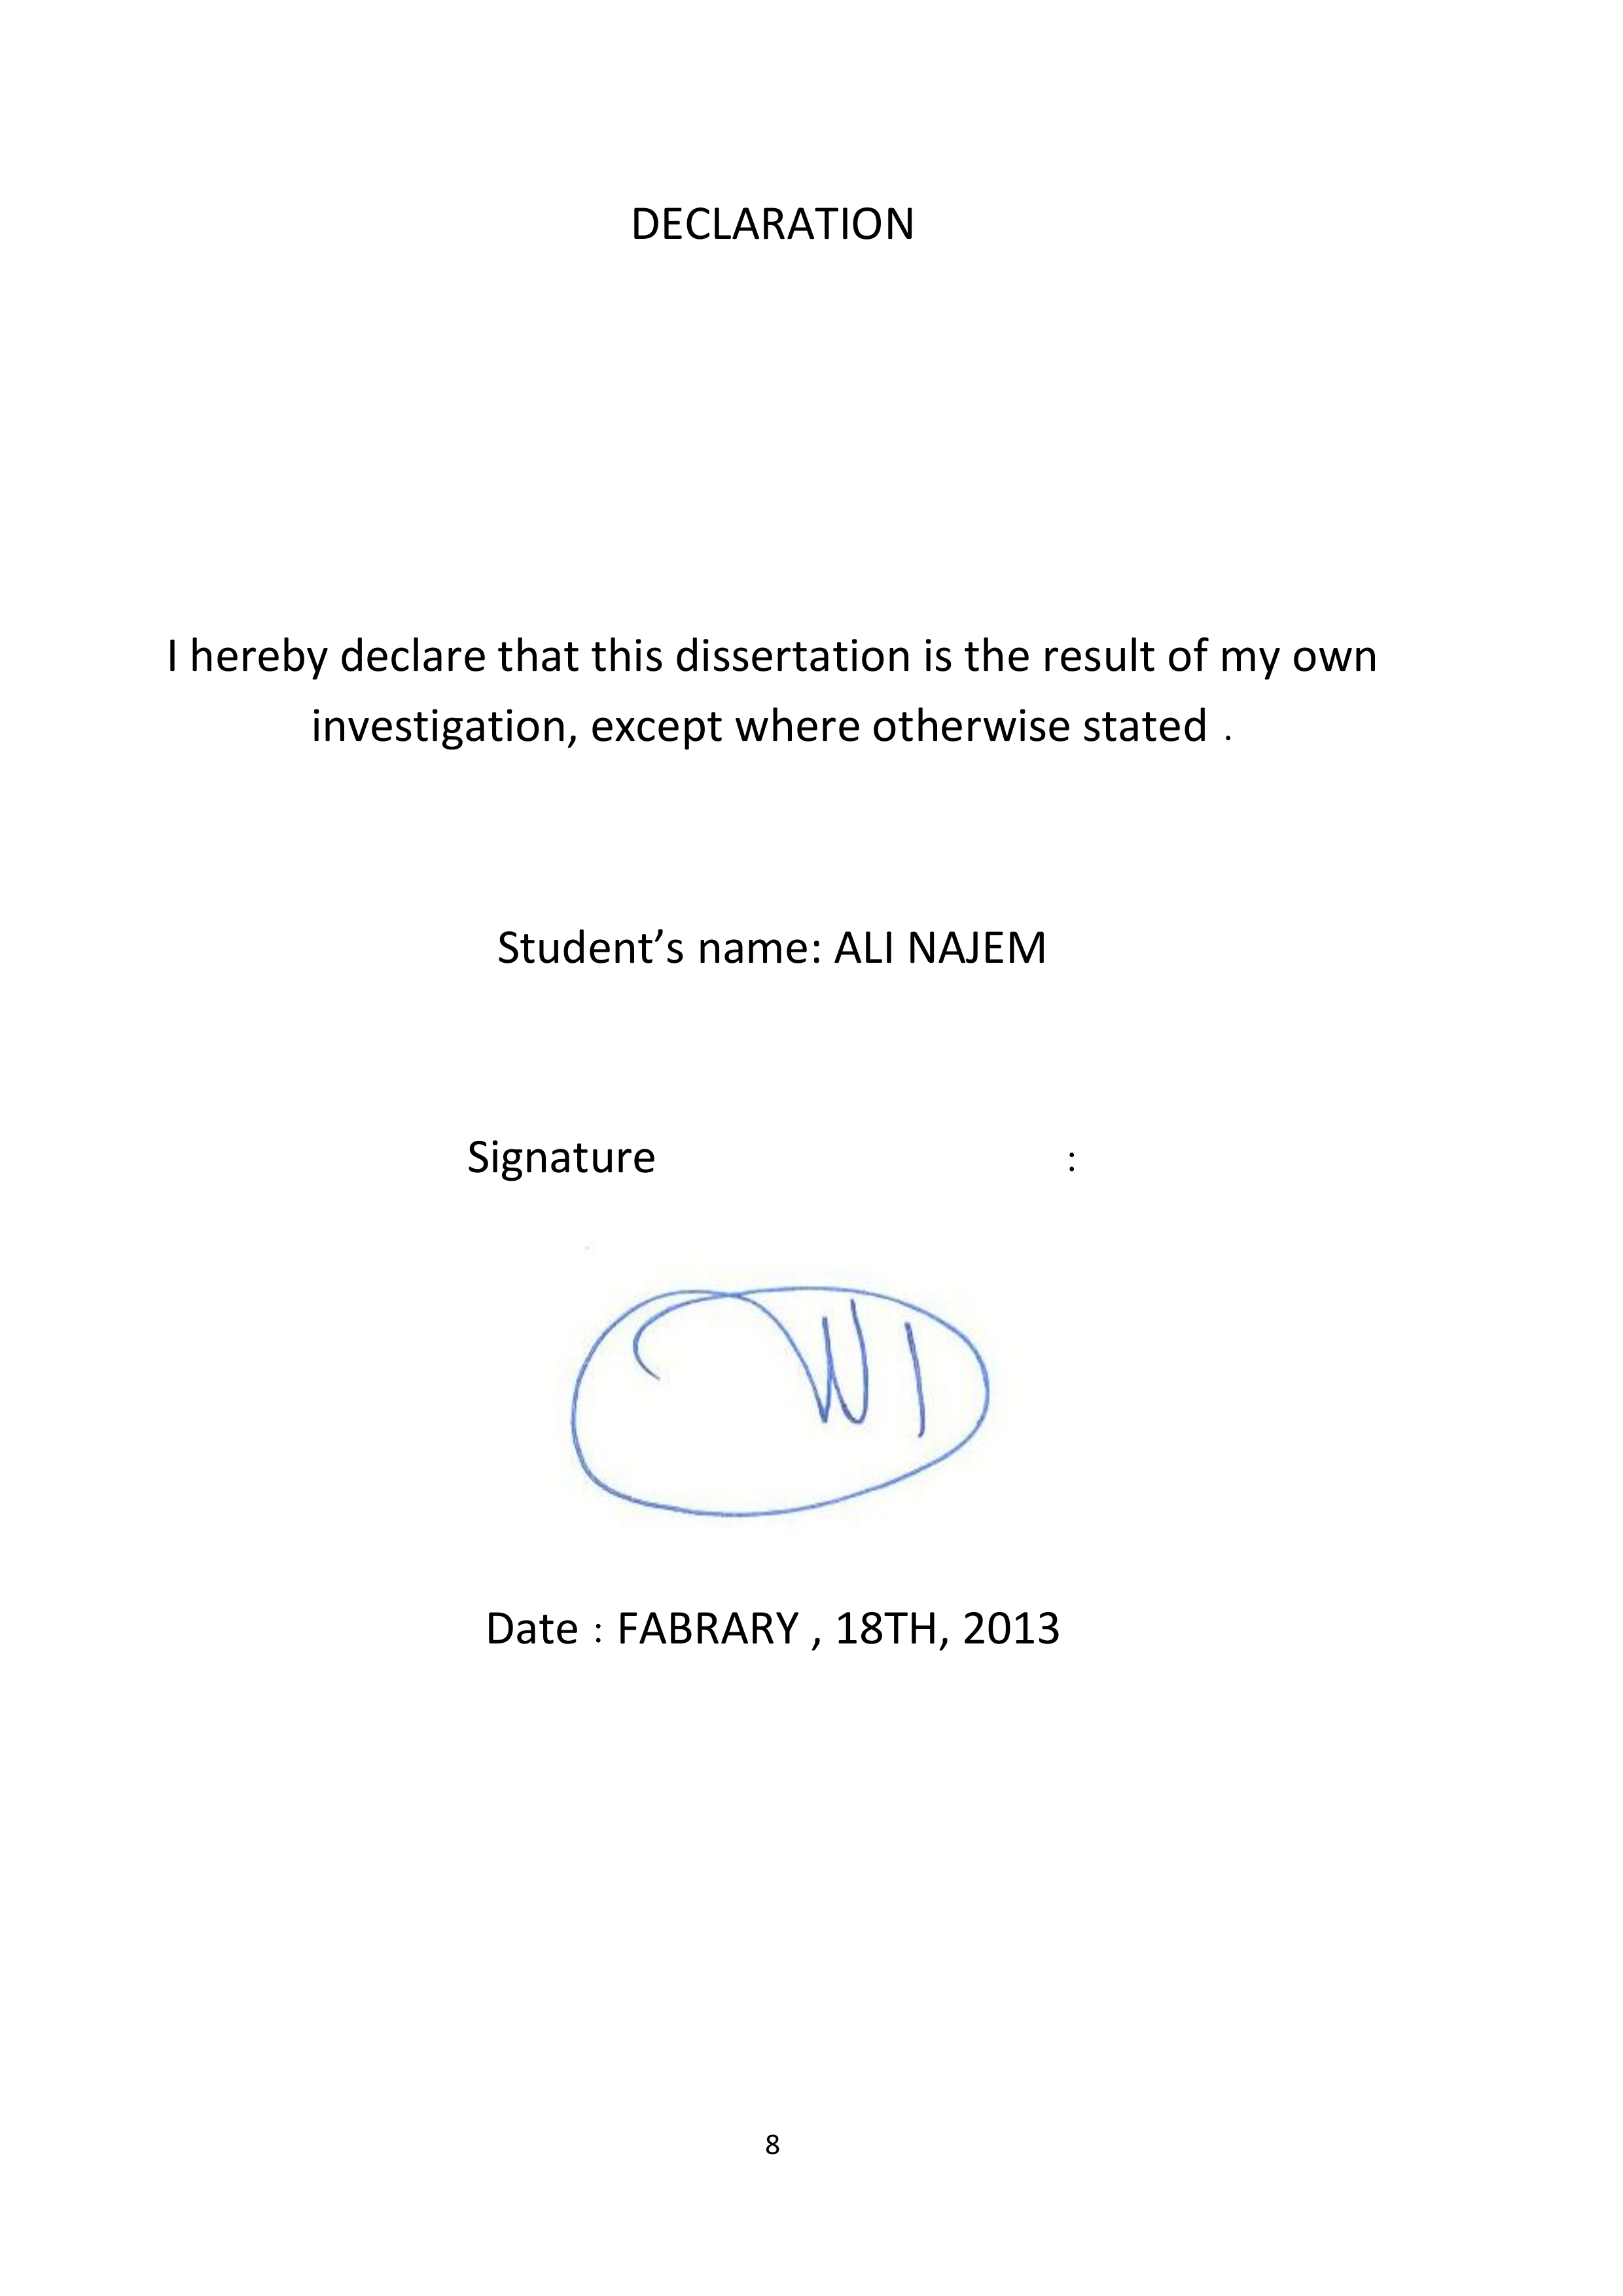 DECLARATION
I hereby declare that this dissertation is the result of my own
investigation, except where otherwise stated .
Student’s name: ALI NAJEM
Signature :
Date : FABRARY , 18TH, 2013
8